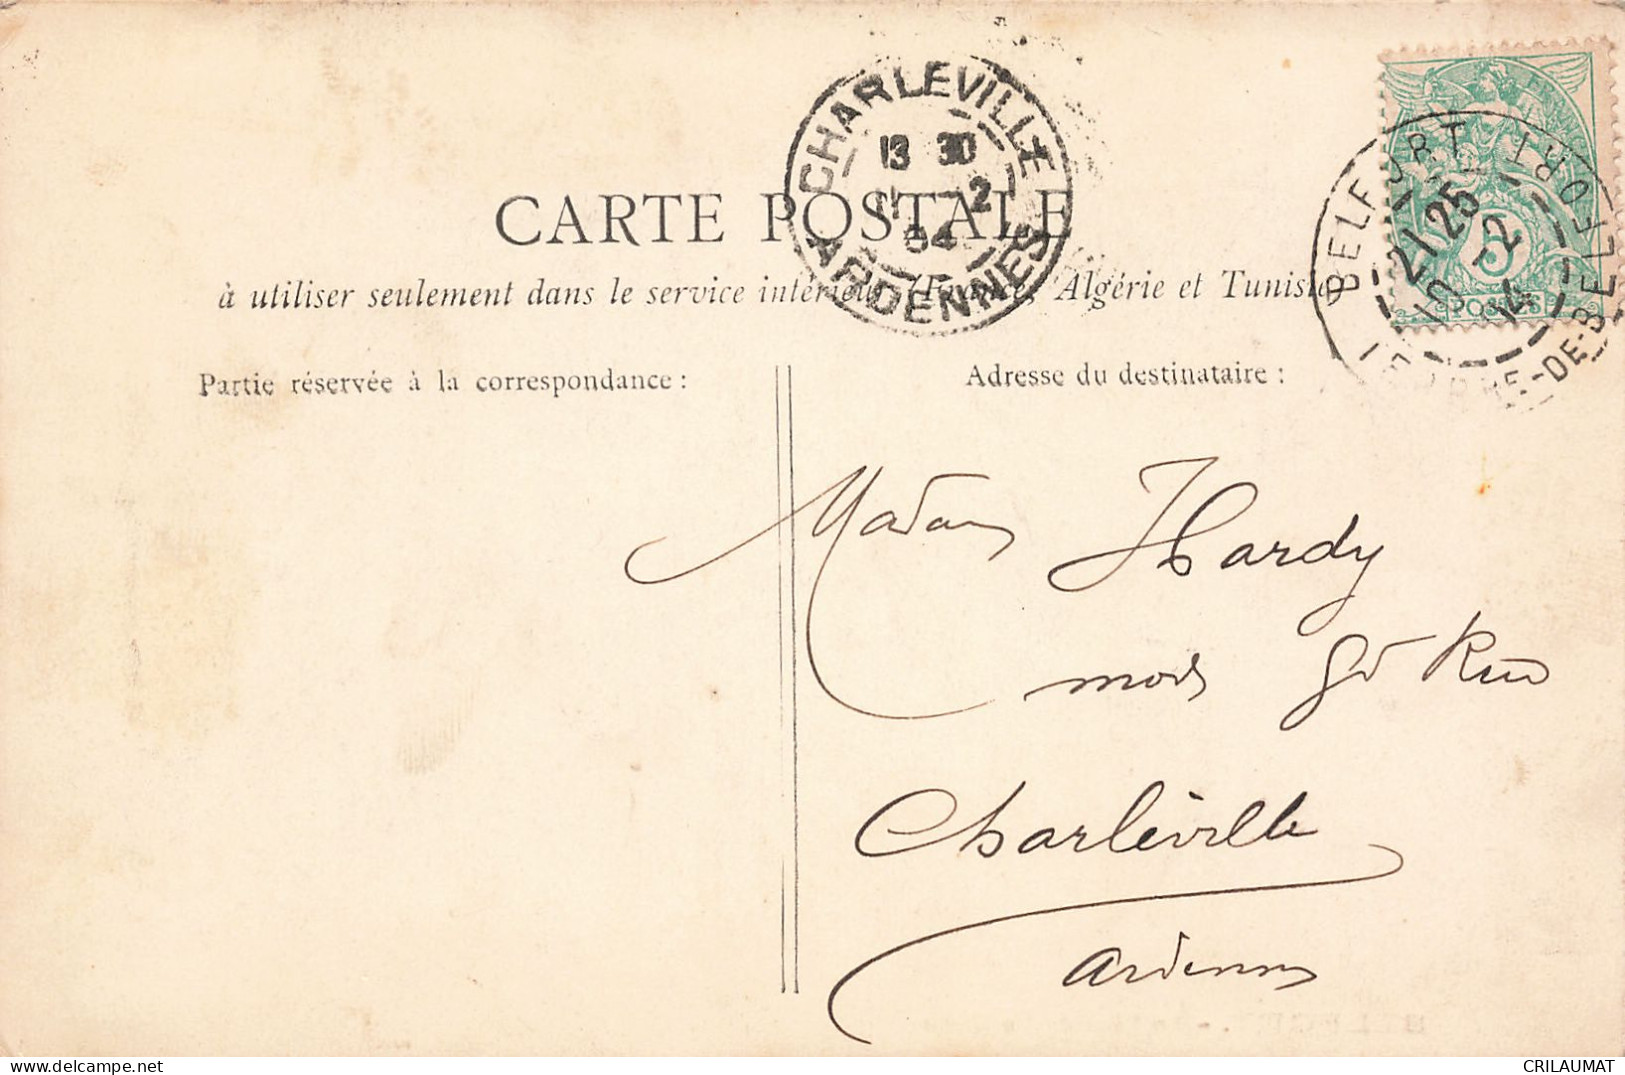 CHARLEVILLE
13 30
11 -2
04
ARDENNES
BELFORT BELFORT
21 25
10 -2
POSTES
5
CARTE POSTALE
à utiliser seulement dans le service intérieur (France, Algérie et Tunisie)
Partie réservée à la correspondance :
Adresse du destinataire :
Madame Hardy
modes Gde Rue
Charleville
Ardennes
CRILAUMAT